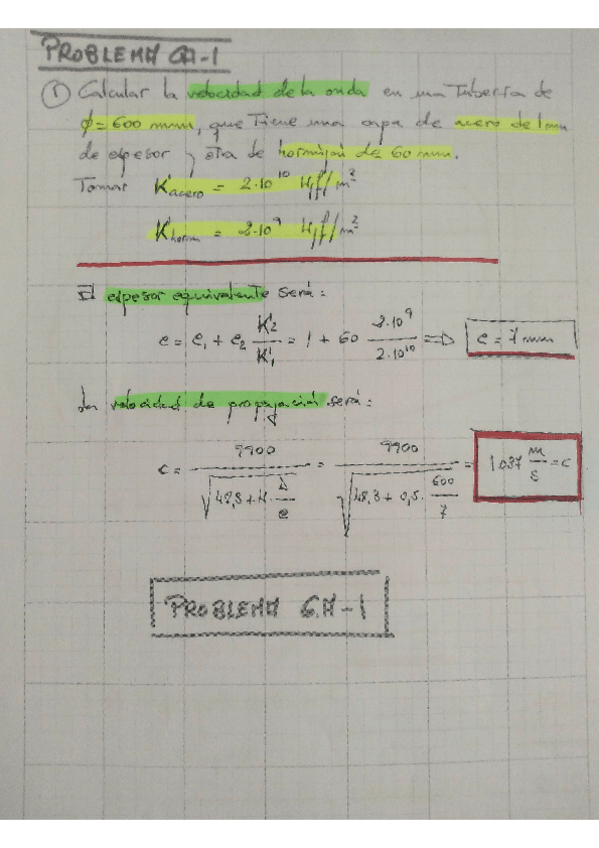 PROBLEMA 6A-1
① Calcular la velocidad de la onda en una tubería de
ϕ = 600 mm, que tiene una capa de acero de 1 mm
de espesor y otra de hormigón de 60 mm.
Tomar K acero = 2·10^10 Kgf/m²
K horm = 2·10^9 Kgf/m²
El espesor equivalente será:
e = e₁ + e₂ K₂/K₁ = 1 + 60 2·10^9/2·10^10 => e = 7 mm
La velocidad de propagación será:
c = 9900/√(48,3 + K · D/e) = 9900/√(48,3 + 0,5 · 600/7) = 1.037 m/s = c
PROBLEMA 6.A-1